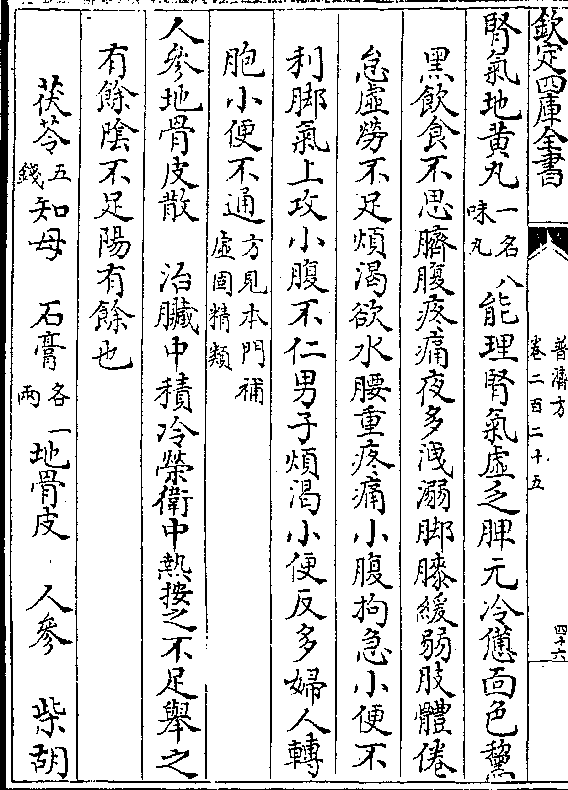 欽定四庫全書
普濟方
卷二百二十五
四十六
腎氣地黃丸一名八味丸能理腎氣虛乏脾元冷憊面色黧
黑飲食不思臍腹疼痛夜多洩溺脚膝緩弱肢體倦
怠虛勞不足煩渴欲水腰重疼痛小腹拘急小便不
利脚氣上攻小腹不仁男子煩渴小便反多婦人轉
胞小便不通方見本門補虛固精類
人參地骨皮散 治臟中積冷榮衛中熱按之不足舉之
有餘陰不足陽有餘也
茯苓五錢知母 石膏各一兩地骨皮 人參 柴胡